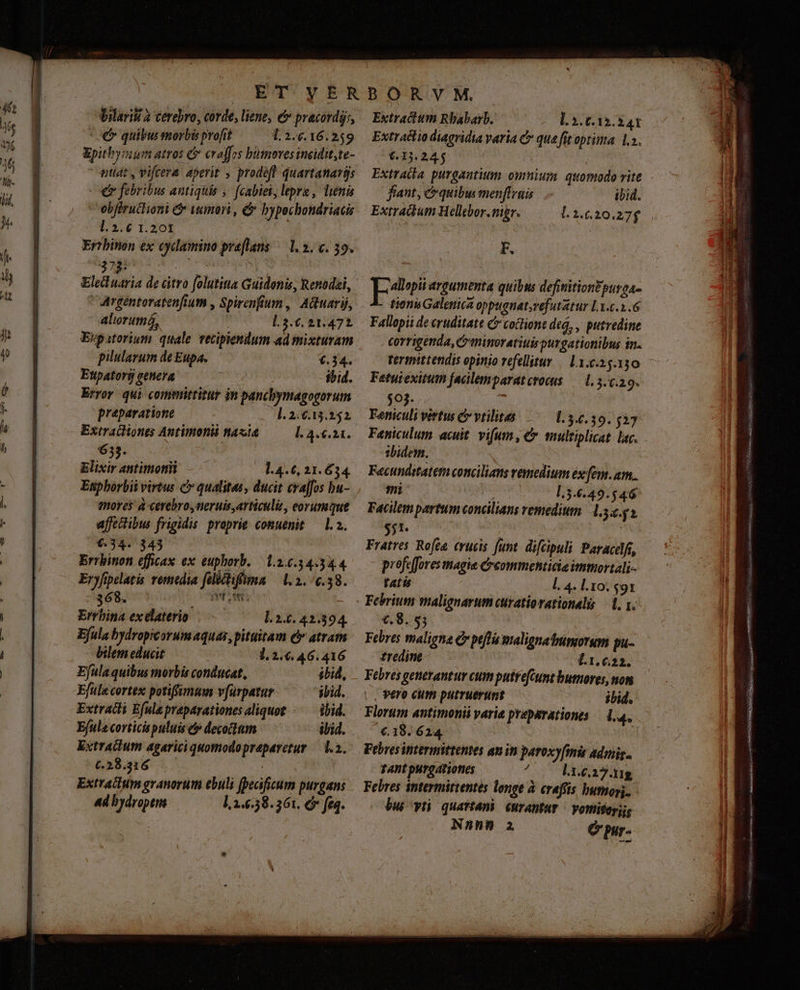 ET VERBORVM.
bilariū à cerebro, corde, liene, & præcordijs,
& quibus morbis profit l. 2. c. 16. 259
Epithymum atros & crassos humores incidit, te-
nuat, viscera aperit, prodest quartanarijs
& febribus antiquis, scabiei, lepræ, lienis
obstructioni & tumori, & hypochondriacis
l. 2. c 1. 201
Errhinon ex cyclamino præstans l. 2. c. 39.
373.
Electuaria de citro solutiua Guidonis, Renodæi,
Argentoratensium, Spirensium, Actuarij,
aliorumq́, l. 3. c. 21. 472
Eupatorium quale recipiendum ad mixturam
pilularum de Eupa. c. 34.
Eupatorij genera ibid.
Error qui committitur in panchymagogorum
præparatione l. 2. c. 13. 252
Extractiones Antimonii noxiæ l. 4. c. 21.
633.
Elixir antimonii l. 4. c, 21. 634
Euphorbii virtus & qualitas, ducit crassos hu-
mores à cerebro, neruis, articulis, eorumque
affectibus frigidis proprie conuenit l. 2.
c. 34. 343
Errhinon efficax ex euphorb. l. 2. c. 34. 344
Erysipelatis remedia selectissima l. 2. c. 38.
368.
Errhina ex elaterio l. 2. c. 42. 394
Esula hydropicorum aquas, pituitam & atram
bilem educit l. 2. c. 46. 416
Esula quibus morbis conducat, ibid,
Esulæ cortex potissimum vsurpatur ibid.
Extracti Esulæ præparationes aliquot ibid.
Esulæ corticis puluis & decoctum ibid.
Extractum agarici quomodo præparetur l. 2.
c. 28. 316
Extractum granorum ebuli specificum purgans
ad hydropem l. 2. c. 38. 361. & seq.
Extractum Rhabarb. l. 2. c. 12. 241
Extractio diagridia varia & quæ sit optima l. 2.
c. 13. 245
Extracta purgantium omnium quomodo rite
fiant, & quibus menstruis ibid.
Extractum Hellebor. nigr. l. 2. c. 20. 275
F.
Fallopii argumenta quibus definitionē purga-
tionis Galenicā oppugnat, refutātur l. 1. c. 2. 6
Fallopii de cruditate & coctione deq́, putredine
corrigenda, & minoratiuis purgationibus in-
termittendis opinio refellitur l. 1. c. 25. 130
Fœtui exitum facilem parat crocus l. 3. c. 29.
503.
Fœniculi vertus & vtilitas l. 3. c. 39. 527
Fœniculum acuit visum, & multiplicat lac.
ibidem.
Fœcunditatem concilians remedium ex sem. am-
mi l. 3. c. 49. 546
Facilem partum concilians remedium l. 3. c. 52
551.
Fratres Roseæ crucis sunt discipuli Paracelsi,
professores magiæ & commenticiæ immortali-
tatis l. 4. l. 10. 591
Febrium malignarum curatio rationalis l. 1.
c. 8. 53
Febres malignæ & pestis maligna humorum pu-
tredine l. 1, c. 22.
Febres generantur cum putrescunt humores, non
vero cum putruerunt ibid.
Florum antimonii variæ præparationes l. 4.
c. 18. 624
Febres intermittentes an in paroxysmis admit-
tant purgationes l. 1. c. 27. 118
Febres intermittentes longe à crassis humori-
bus vti quartani curantur vomitoriis
Nnnn 2 & pur-